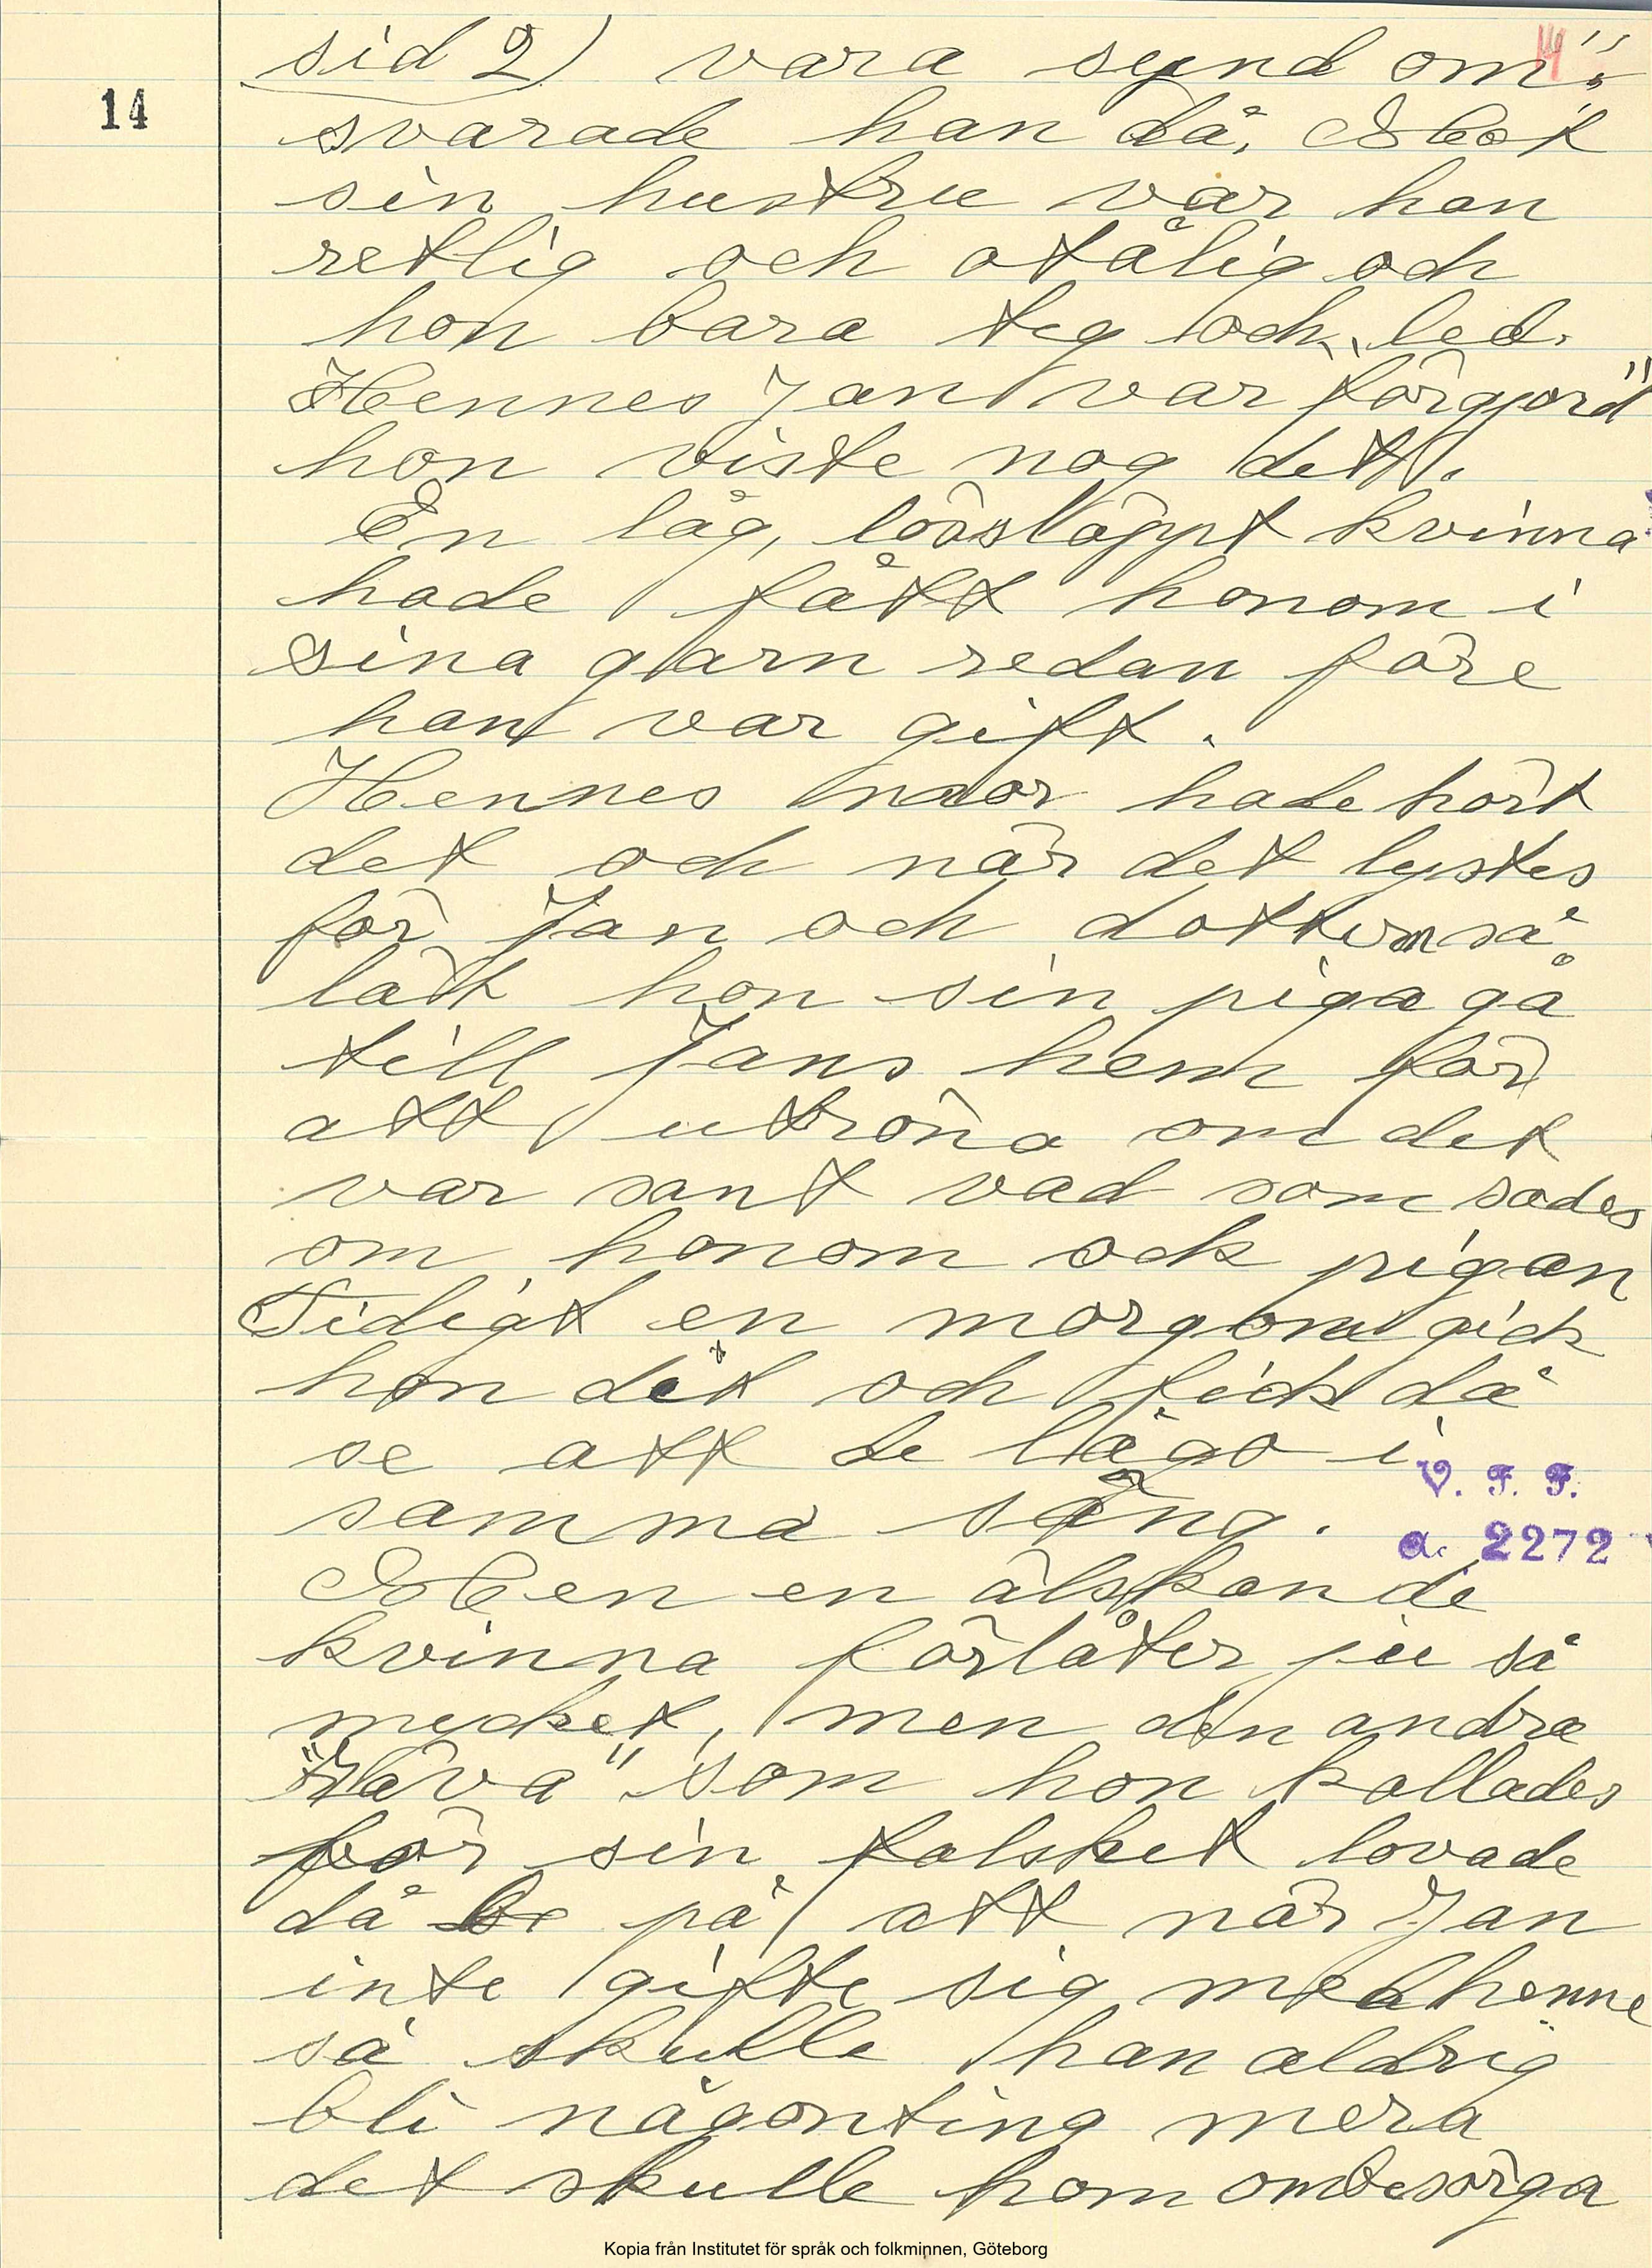 sid 2) vara synd om".
14
svarade han då, Mot
sin hustru var han
retlig och otålig och
hon bara teg och led.
Hennes Jan var förgjord"
hon viste nog det.
En låg, lössläppt kvinna
hade fått honom i
sina garn redan före
han var gift.
Hennes mor hade hört
det och när det lystes
för Jan och dottern så
lät hon sin piga gå
till Jans hem för
att utröna om det
var sant vad som sades
om honom och pigan
Tidigt en morgon gick
hon dit och fick då
se att de lågo i
samma säng.
V. F. F.
a. 2272
Men en älskande
kvinna förlåter ju så
mycket, men den andra
"Räva" som hon kallades
för sin falsket lovade
då på att när Jan
inte gifte sig med henne
så skulle han aldrig
bli någonting mera
det skulle hon ombesörga
Kopia från Institutet för språk och folkminnen, Göteborg